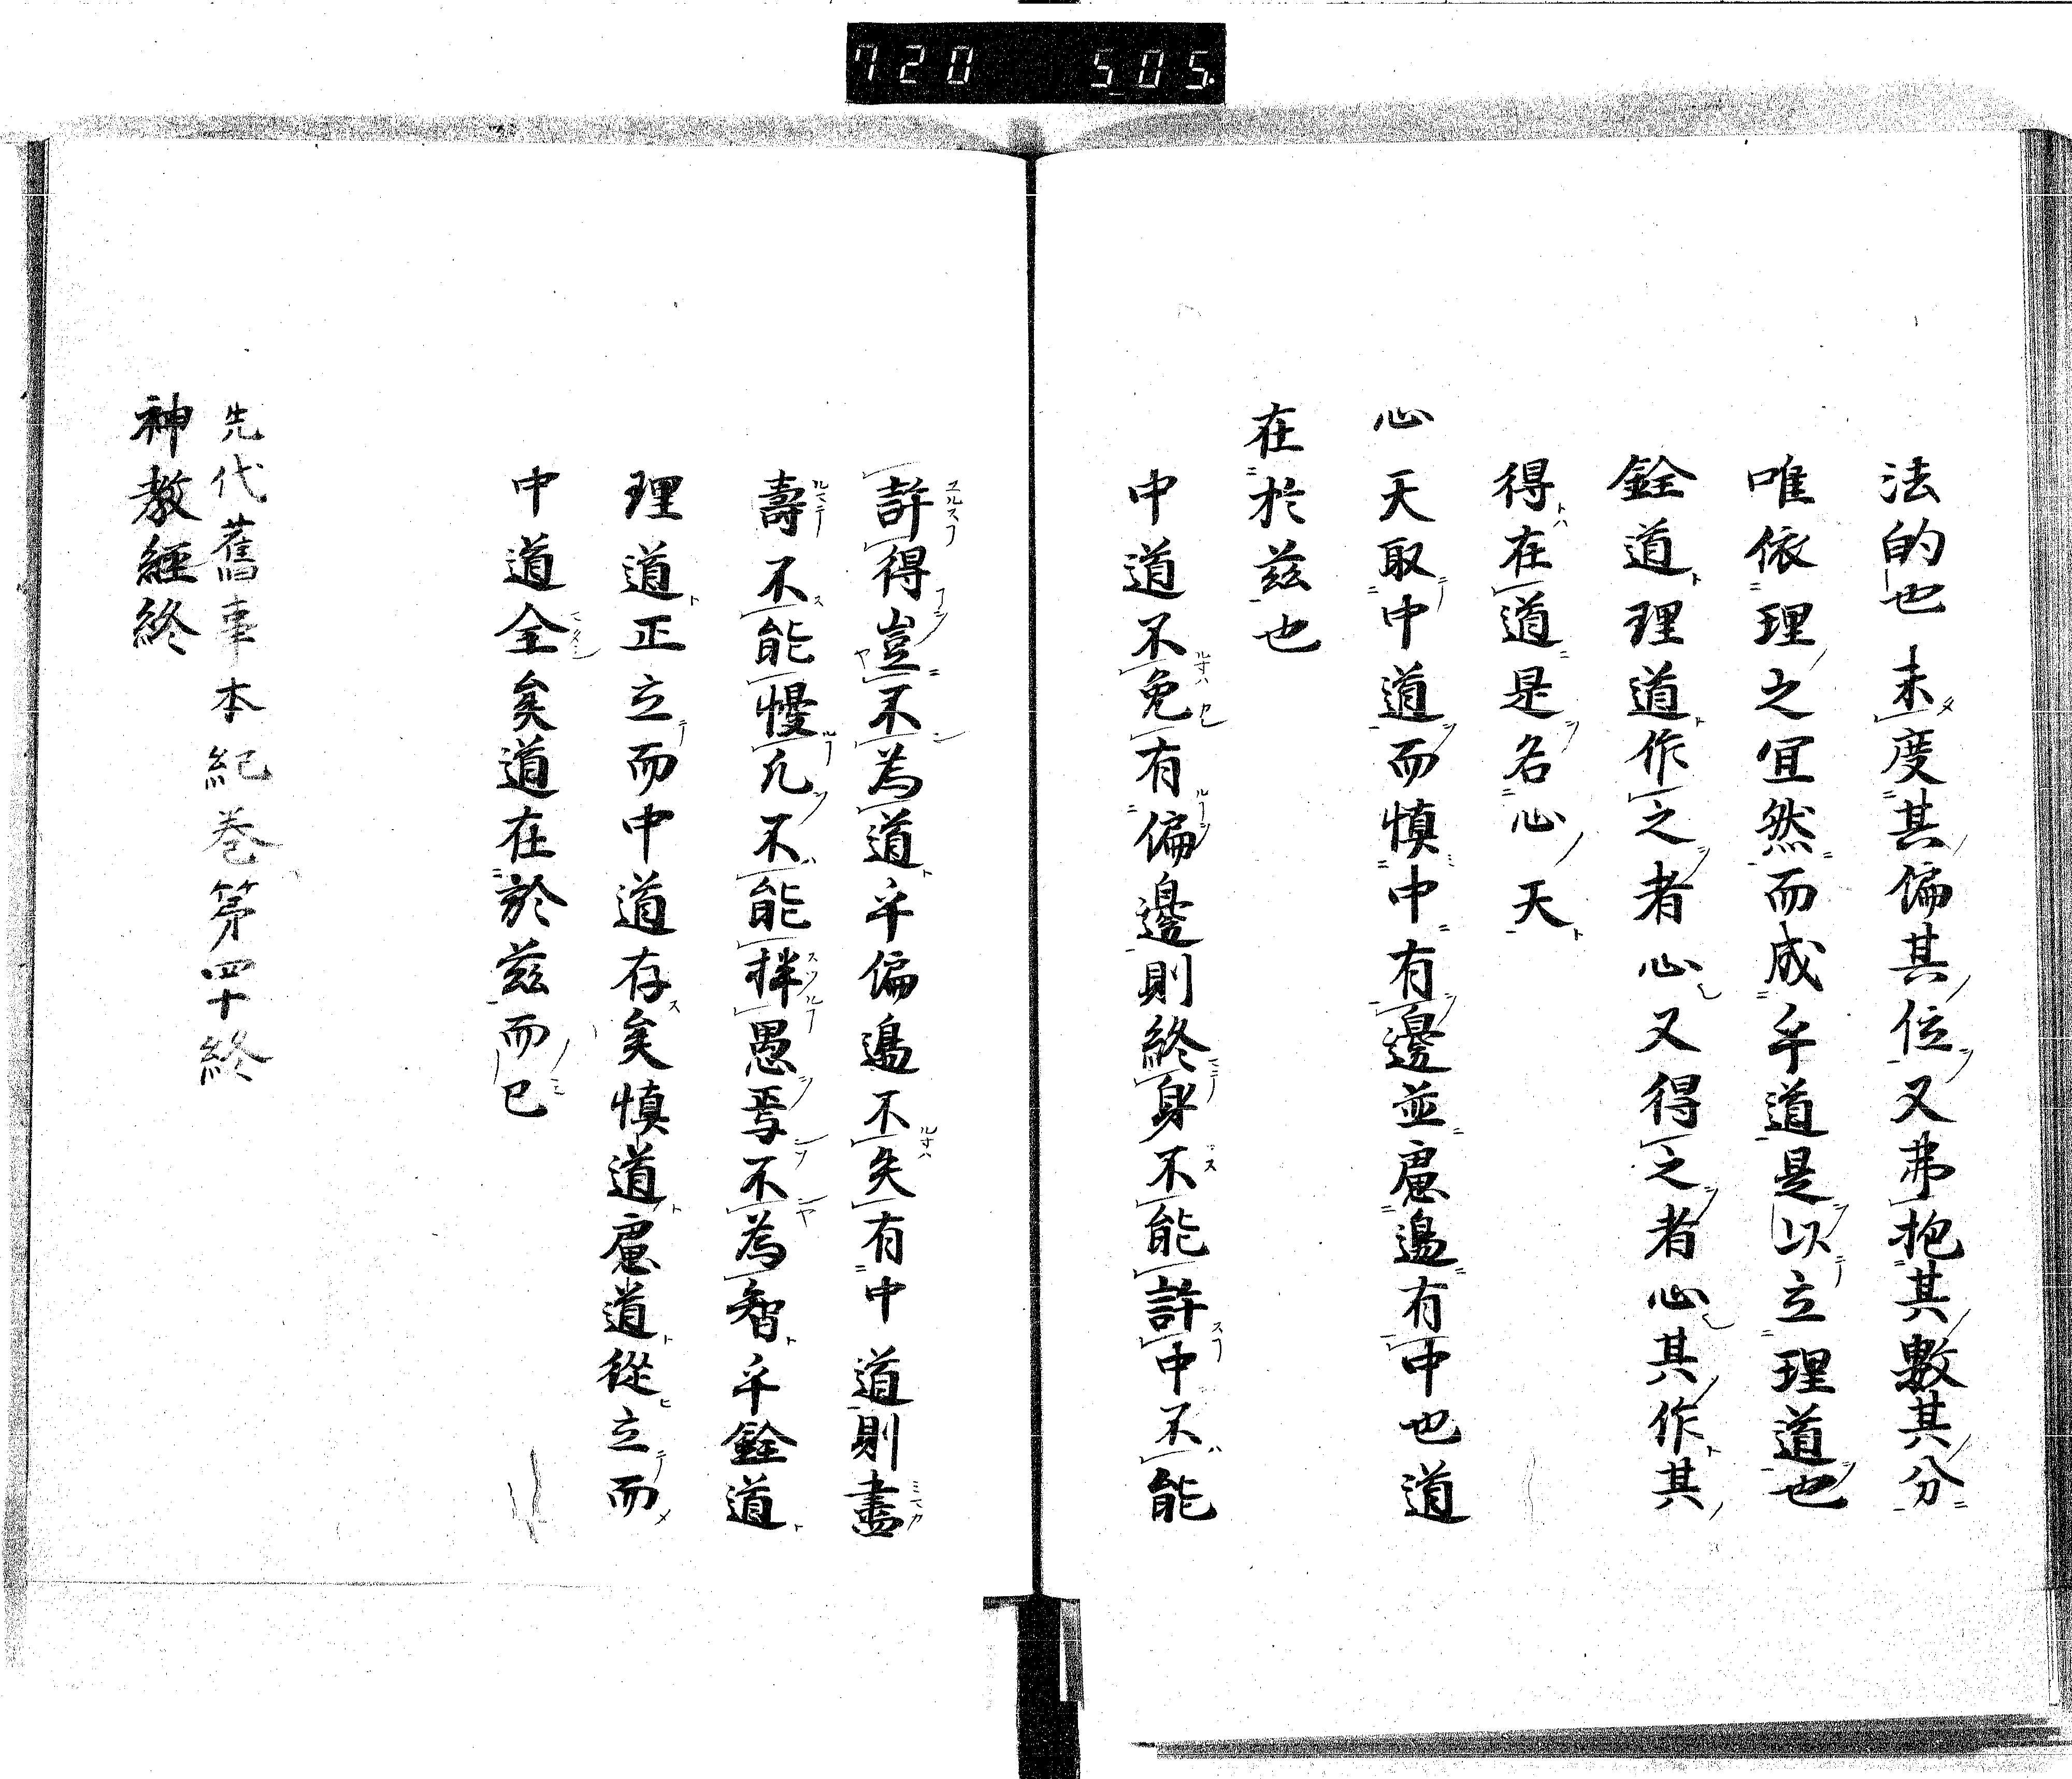 720 505
法的也未度其偏其位又弗抱其數其分
唯依理之宜然而成乎道是以立理道也
銓道理道作之者心又得之者心其作其
得在道是名心天
心天取中道而慎中有邊並慮邊有中也道
在於茲也
中道不免有偏邊則終身不能許中不能
許得豈不為道乎偏邊不失有中道則盡
壽不能慢凢不能拌愚焉不為智乎銓道
理道正立而中道存矣慎道慮道從立而
中道全矣道在於茲而已
先代舊事本紀巻第四十終
神教經終